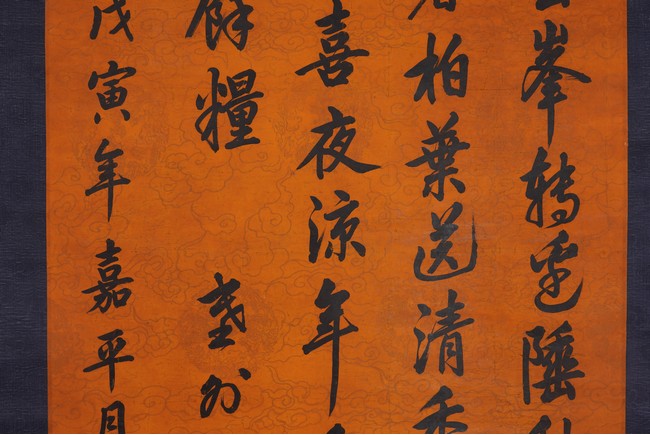 峯轉邊陲
柏葉送清香
喜夜涼年
餘糧 塞外
戊寅年嘉平月